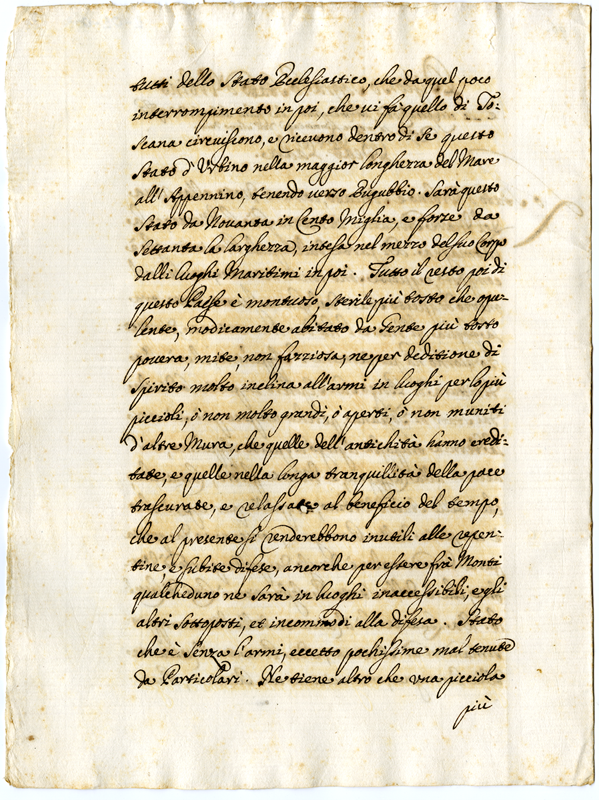 tutti dello Stato Ecclesiastico, che da quel poco
interrompimento in poi, che vi fà quello di To-
scana circuiscono, e ricevono dentro di se questo
Stato d'Urbino nella maggior longhezza del Mare
all'Appennino, tenendo verso Eugubbio. Sarà questo
Stato da Novanta in Cento Miglia, e forze da
Settanta la larghezza, intesa nel mezzo del suo Corpo
dalli luoghi Maritimi in poi. Tutto il resto poi di
questo Paese è montuoso, sterile più tosto che opu-
lente, modicamente abitato da Gente più tosto
povera, mite, non fazziosa, ne per deditione di
spirito molto inclina all'armi in luoghi per lo più
piccioli, ò non molto grandi, ò aperti, ò non muniti
d'altre Mura, che quelle dell'antichità hanno eredi-
tate, e quelle nella longa tranquillità della pace
trascurate, e relassate al beneficio del tempo,
che al presente si renderebbono inutili alle repen-
tine, e subite difese, ancorche per essere frà Monti
qualcheduno ne sarà in luoghi inaccessibili, e gli
altri sottoposti, et incommodi alla difesa. Stato
che è senza l'armi, eccetto pochissime mal tenute
da Particolari. Ne tiene altro che una picciola
più